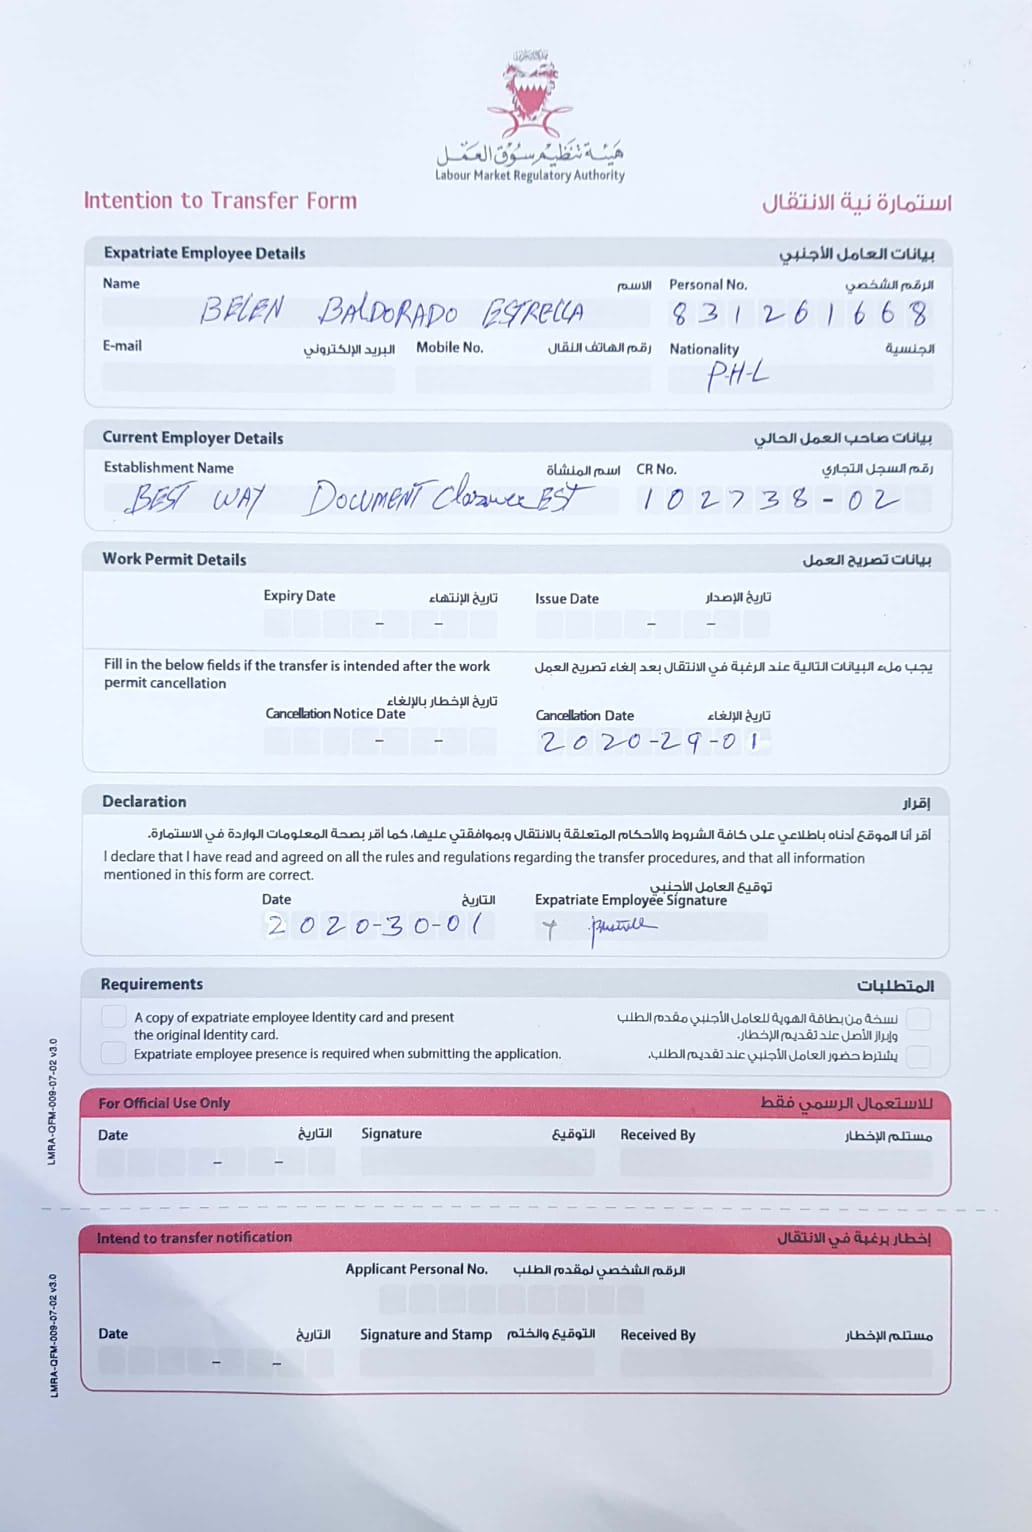 هيئة تنظيم سوق العمل
Labour Market Regulatory Authority
Intention to Transfer Form استمارة نية الانتقال
Expatriate Employee Details بيانات العامل الأجنبي
Name الاسم Personal No. الرقم الشخصي
BELEN BALDORADO ESTRELLA 831261668
E-mail البريد الإلكتروني Mobile No. رقم الهاتف النقال Nationality الجنسية
P-H-L
Current Employer Details بيانات صاحب العمل الحالي
Establishment Name اسم المنشأة CR No. رقم السجل التجاري
BEST WAY DOCUMENT EST 102738-02
Work Permit Details بيانات تصريح العمل
Expiry Date تاريخ الإنتهاء Issue Date تاريخ الإصدار
- - - -
Fill in the below fields if the transfer is intended after the work يجب ملء البيانات التالية عند الرغبة في الانتقال بعد إلغاء تصريح العمل
permit cancellation
تاريخ الإخطار بالإلغاء
Cancellation Notice Date Cancellation Date تاريخ الإلغاء
- - 2020-29-01
Declaration إقرار
أقر أنا الموقع أدناه باطلاعي على كافة الشروط والأحكام المتعلقة بالانتقال وبموافقتي عليها، كما أقر بصحة المعلومات الواردة في الاستمارة.
I declare that I have read and agreed on all the rules and regulations regarding the transfer procedures, and that all information
mentioned in this form are correct.
توقيع العامل الأجنبي
Date التاريخ Expatriate Employee Signature
2020-30-01
Requirements المتطلبات
A copy of expatriate employee Identity card and present نسخة من بطاقة الهوية للعامل الأجنبي مقدم الطلب
the original Identity card. وإبراز الأصل عند تقديم الإخطار.
Expatriate employee presence is required when submitting the application. يشترط حضور العامل الأجنبي عند تقديم الطلب.
LMRA-QFM-009-07-02 v3.0
For Official Use Only للاستعمال الرسمي فقط
Date التاريخ Signature التوقيع Received By مستلم الإخطار
- -
Intend to transfer notification إخطار برغبة في الانتقال
Applicant Personal No. الرقم الشخصي لمقدم الطلب
LMRA-QFM-009-07-02 v3.0
Date التاريخ Signature and Stamp التوقيع والختم Received By مستلم الإخطار
- -